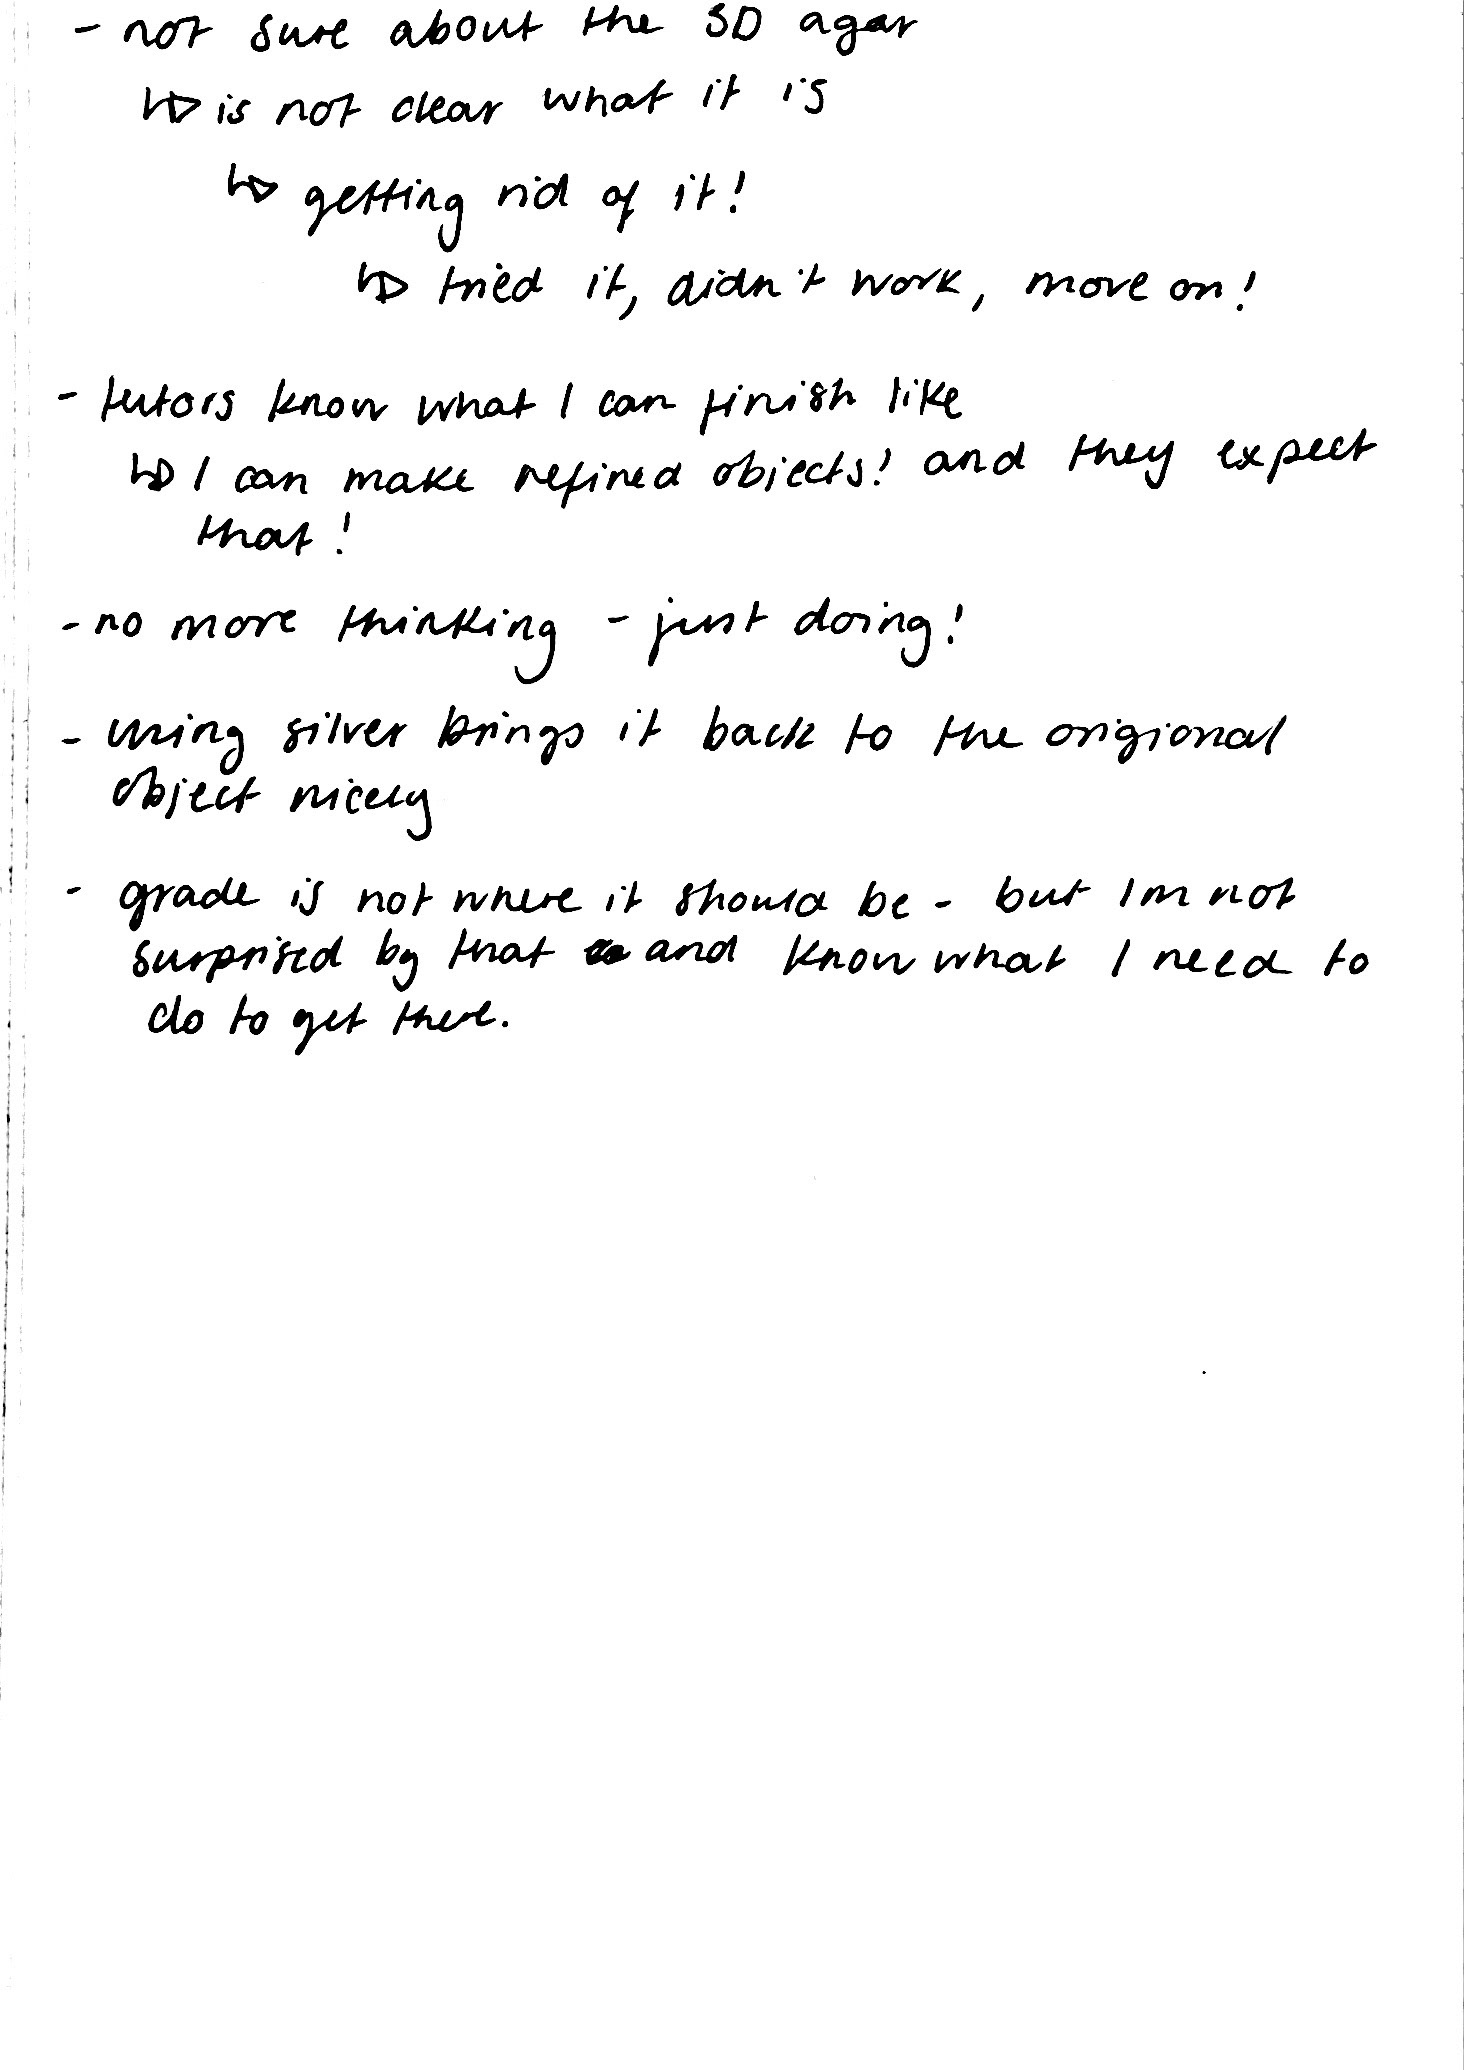 - not sure about the 3D agar
↳ is not clear what it is
↳ getting rid of it!
↳ tried it, didn't work, move on!
- tutors know what I can finish like
↳ I can make refined objects! and they expect
that!
- no more thinking - just doing!
- using silver brings it back to the origional
object nicely
- grade is not where it should be - but Im not
surprised by that and know what I need to
do to get there.